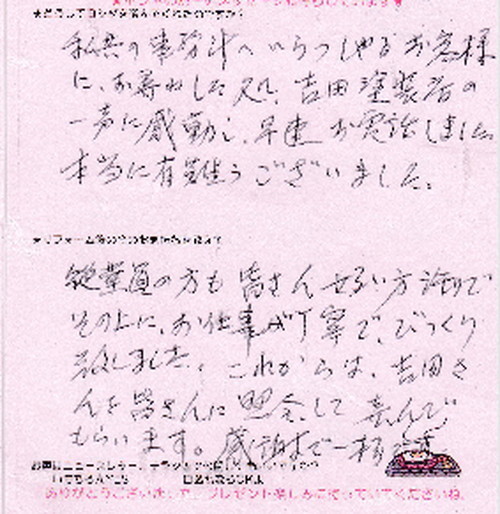 私共の事務所へいらっしゃるお客様
に、お尋ねした処、吉田塗装店の
一声に感動し、早速お電話しました。
本当に有難うございました。
従業員の方も皆さん明るい方許りで
その上に、お仕事が丁寧で、びっくり
致しました。これからは、吉田さ
んを皆さんに照会して喜んで
もらいます。感謝まで一杯です
ありがとうございました。プレゼント楽しみに待っていてくださいね。